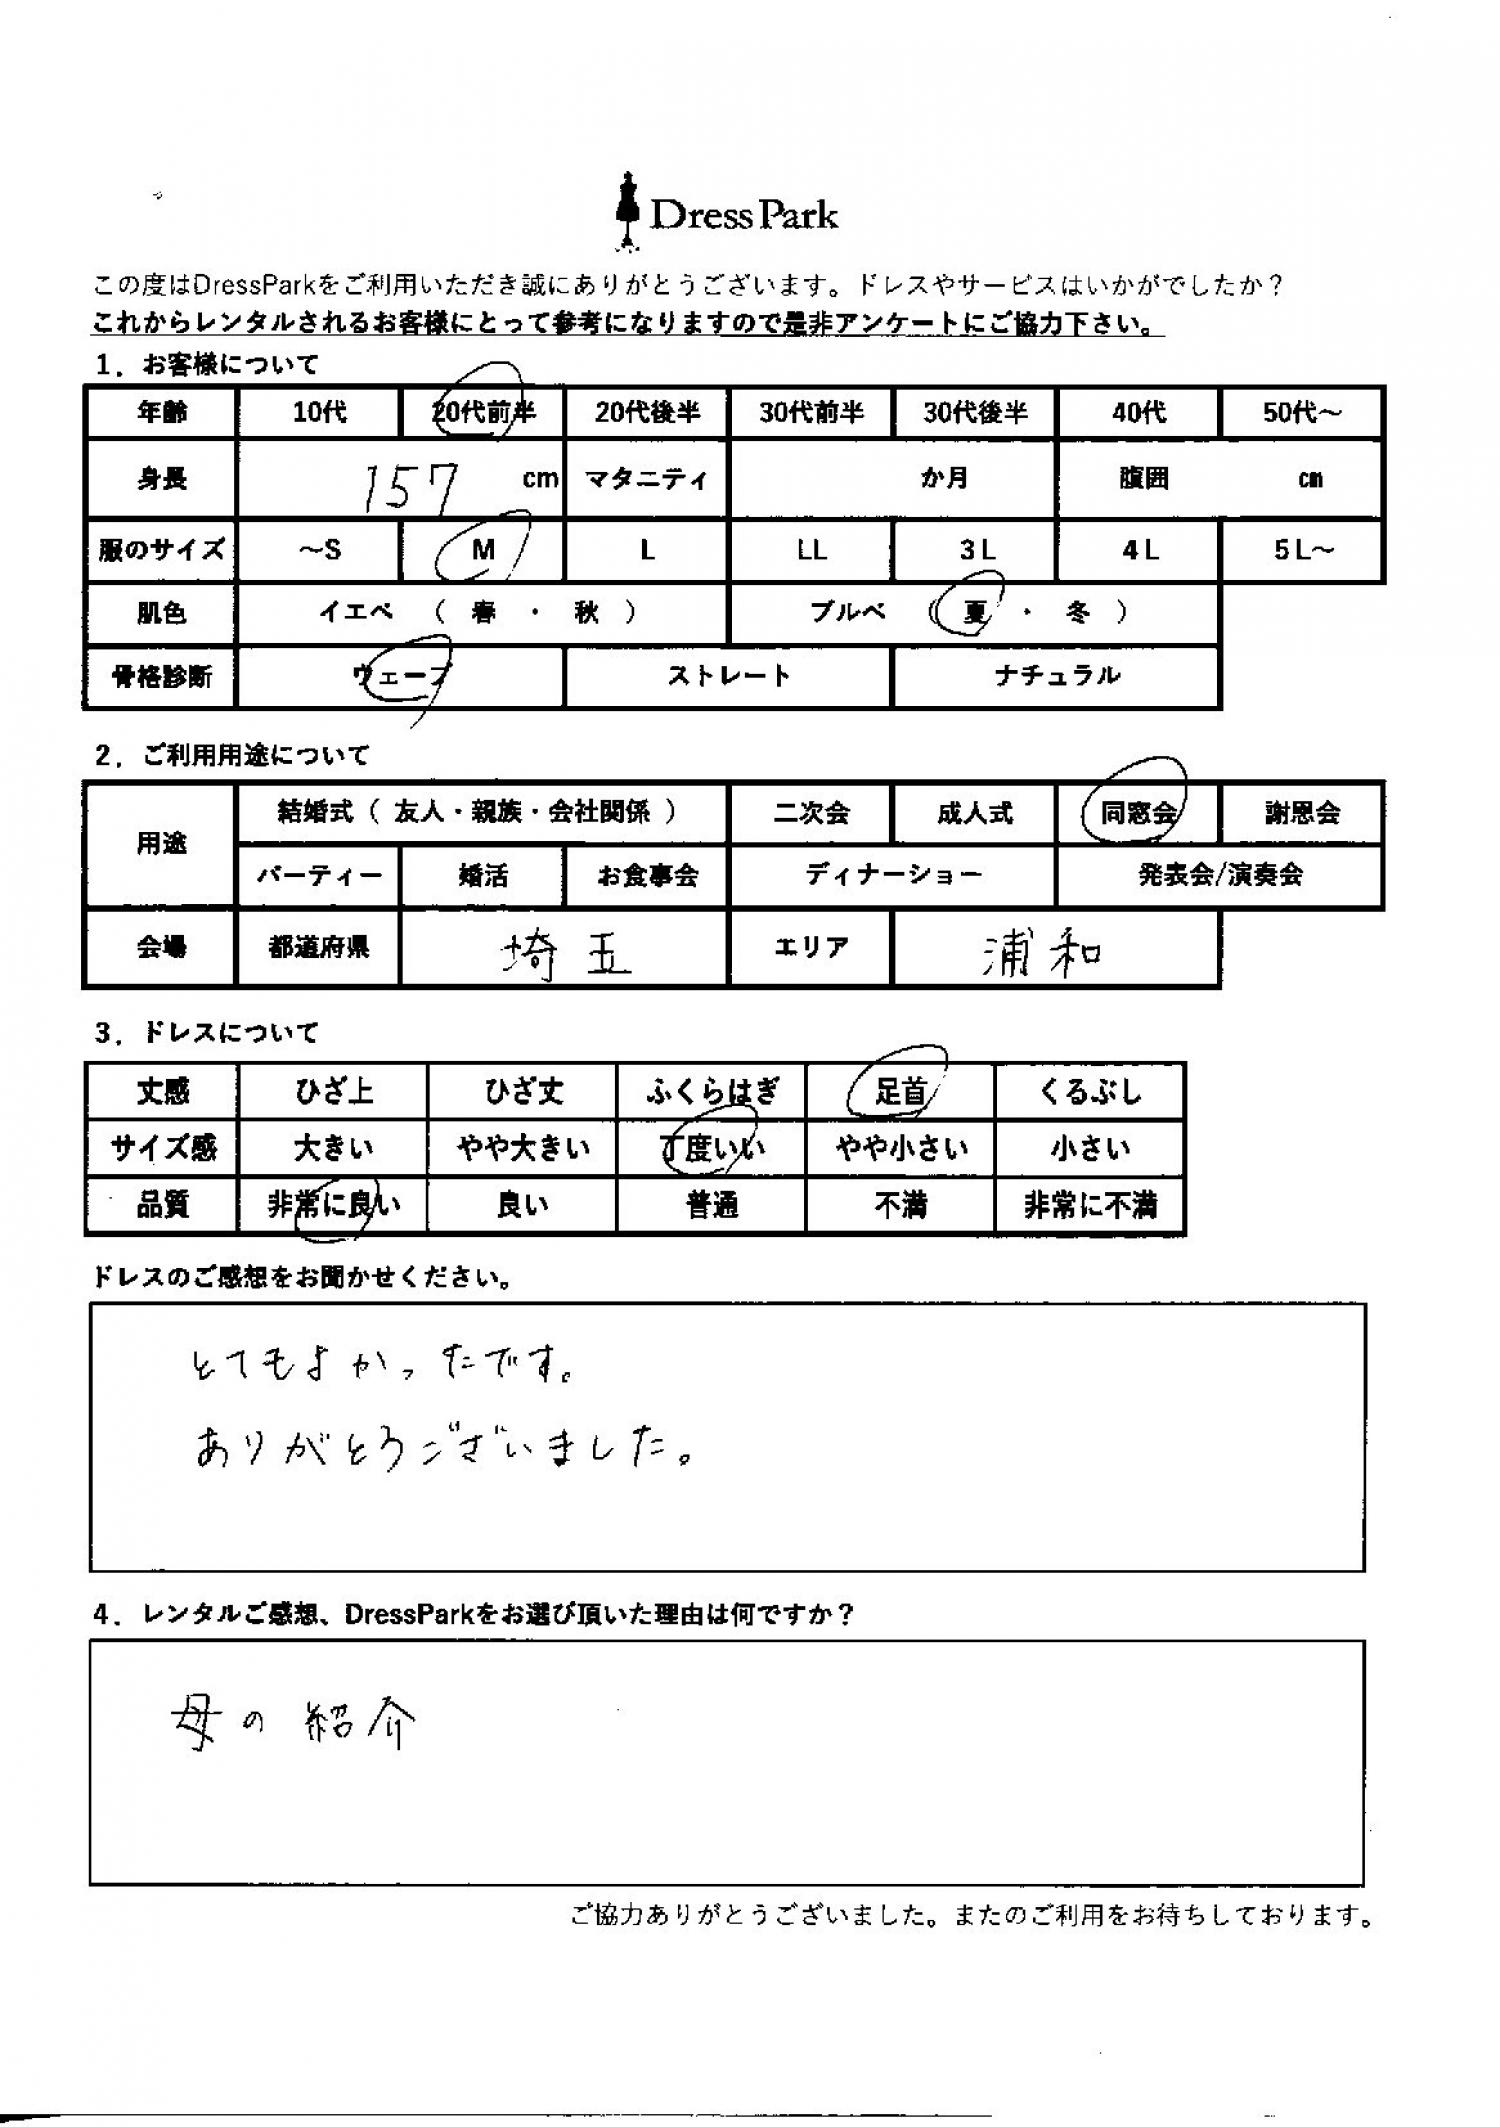 Dress Park
この度はDressParkをご利用いただき誠にありがとうございます。ドレスやサービスはいかがでしたか？
これからレンタルされるお客様にとって参考になりますので是非アンケートにご協力下さい。
1．お客様について
年齢 10代 20代前半 20代後半 30代前半 30代後半 40代 50代～
身長 157 cm マタニティ か月 腹囲 cm
服のサイズ ～S M L LL 3L 4L 5L～
肌色 イエベ （ 春 ・ 秋 ） ブルベ （ 夏 ・ 冬 ）
骨格診断 ウェーブ ストレート ナチュラル
2．ご利用用途について
用途 結婚式（ 友人・親族・会社関係 ） 二次会 成人式 同窓会 謝恩会
パーティー 婚活 お食事会 ディナーショー 発表会/演奏会
会場 都道府県 埼玉 エリア 浦和
3．ドレスについて
丈感 ひざ上 ひざ丈 ふくらはぎ 足首 くるぶし
サイズ感 大きい やや大きい 丁度いい やや小さい 小さい
品質 非常に良い 良い 普通 不満 非常に不満
ドレスのご感想をお聞かせください。
とてもよかったです。
ありがとうございました。
4．レンタルご感想、DressParkをお選び頂いた理由は何ですか？
母の紹介
ご協力ありがとうございました。またのご利用をお待ちしております。